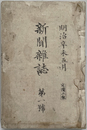 明治辛未五月
新聞雜誌
第一號